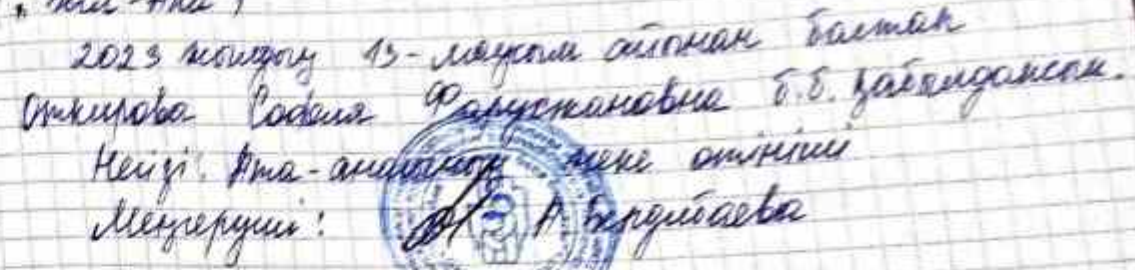 2023 жылдың 13-маусым айынан бастап
Откирова Собеля Фарустановна б.б. қабылдансын.
Негізі: Ата-ананың жеке өтініші
Меңгеруші: А Бердибаева